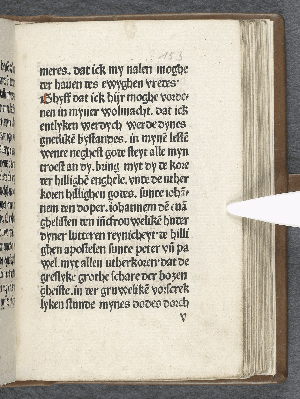 meres. dat ick my nalen moghe
der hauen des ewyghen vredes.
Ghyff dat ick hijr moghe vorde-
nen in myner wolmacht. dat ick
entlyken werdych werde dynes
gnedelikē bystandes. in mynē lestē
wente neghest gode steyt alle myn
troest an dy. bring myt dy de kore
der hillighē enghele. vnde de vther
koren hillighen godes. sunte iohā-
nem den doper. iohannem dē euā
ghelisten den iūcfrouwelikē hoder
dyner lutteren reynicheyt. de hilli
ghen apostelen sunte peter vn̄ pa
wel. myt allen vtherkoren dat de
greslyke grothe schare der bozen
gheiste. in der gruwelikē vorschrek
lyken stunde mynes dodes dorch
v